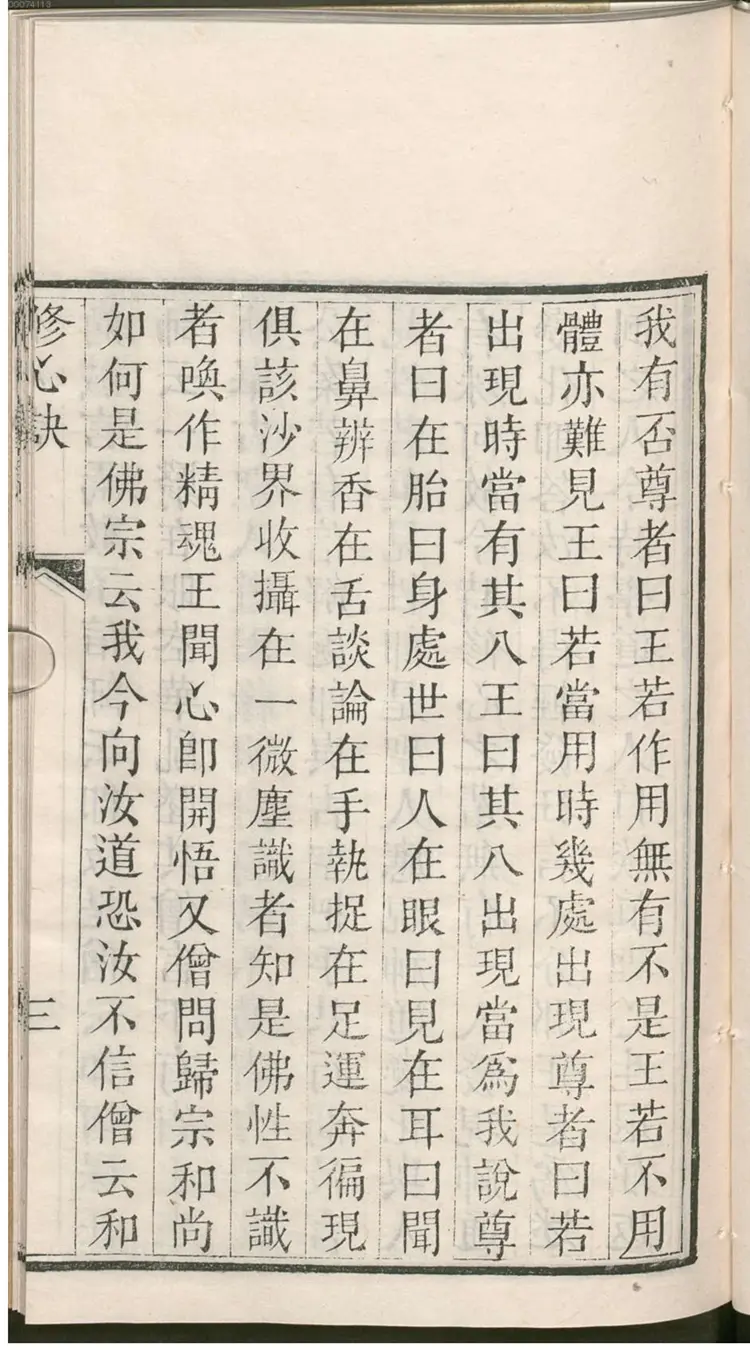 00074113
我有否尊者曰王若作用無有不是王若不用
體亦難見王曰若當用時幾處出現尊者曰若
出現時當有其八王曰其八出現當爲我說尊
者曰在胎曰身處世曰人在眼曰見在耳曰聞
在鼻辨香在舌談論在手執捉在足運奔徧現
俱該沙界收攝在一微塵識者知是佛性不識
者喚作精魂王聞心卽開悟又僧問歸宗和尚
如何是佛宗云我今向汝道恐汝不信僧云和
修心訣
三